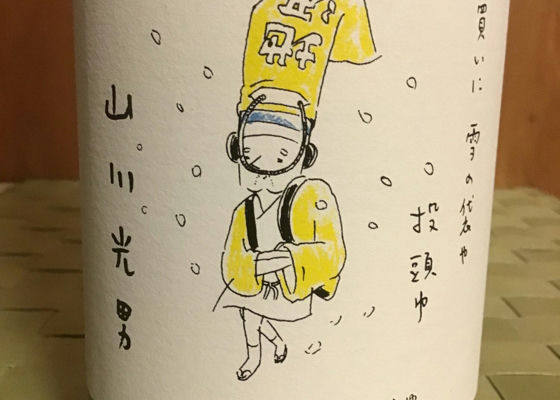 買いに
雪の袋や
投頭巾
山川光男